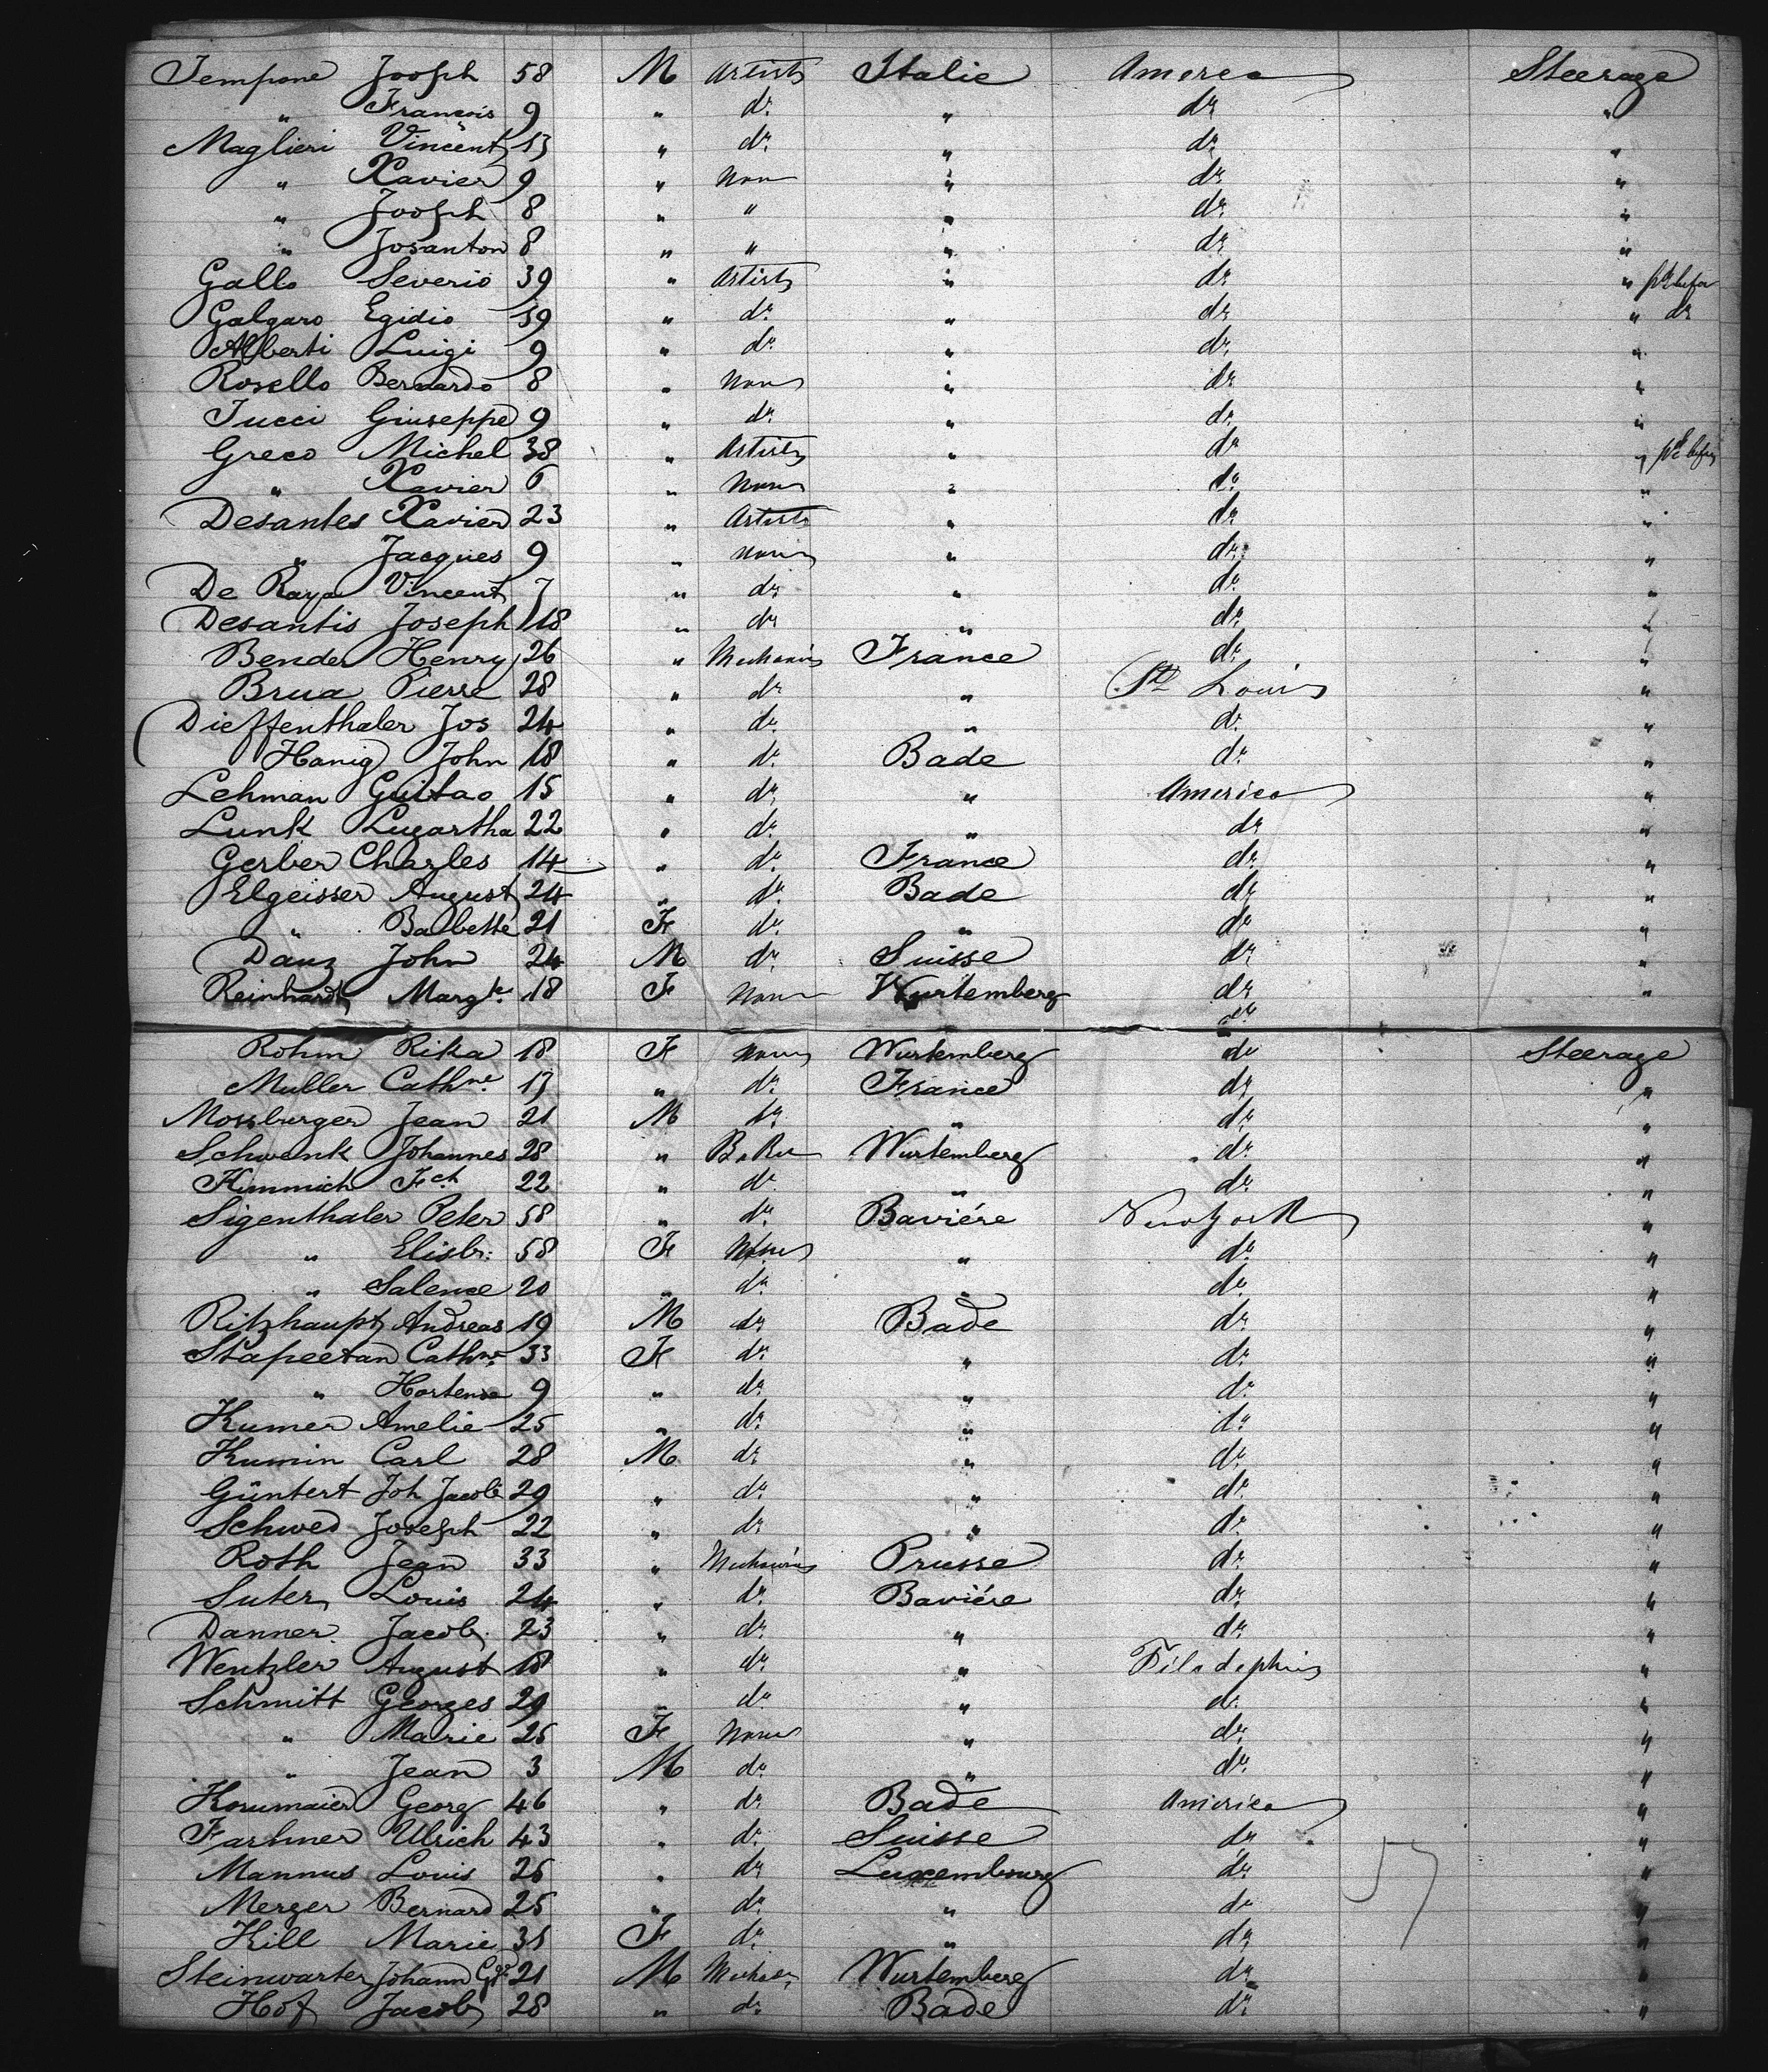 Tempone Joseph 58 M Artist Italie America Steerage
" François 9 " do " do "
Maglieri Vincent 13 " do " do "
" Xavier 9 " Non " do "
" Joseph 8 " " " do "
" Josanton 8 " " " do "
Gallo Severio 39 " Artist " do "
Galgaro Egidio 39 " do " do " do
Alberti Luigi 9 " do " do "
Rosello Bernardo 8 " None " do "
Tucci Giuseppe 9 " do " do "
Greco Michel 38 " Artist " do "
" Xavier 6 " None " do "
Desantes Xavier 23 " Artist " do "
" Jacques 9 " None " do "
De Raya Vincent 7 " do " do "
Desantis Joseph 18 " do " do "
Bender Henry 26 " Mechanic France do "
Brua Pierre 28 " do " St Louis "
Dieffenthaler Jos 24 " do " do "
Hanig John 18 " do Bade do "
Lehman Gustao 15 " do " America "
Lunk Lugartha 22 " do " do "
Gerber Charles 14 " do France do "
Elgeisser August 24 " do Bade do "
" Balbette 21 F do " do "
Danz John 24 M do Suisse do "
Reinhardt Margte 18 F None Wurtemberg do "
do
Rohm Rika 18 F None Wurtemberg do Steerage
Muller Cathne 17 " do France do "
Mossburger Jean 21 M do " do "
Schwenk Johannes 28 " Baker Wurtemberg do "
Kimmich Fch 22 " do " do "
Sigenthaler Peter 58 " do Baviére New York "
" Elisb: 58 F None " do "
" Salence 20 " do " do "
Ritzhaupt Andreas 19 M do Bade do "
Stapeetan Cathne 33 F do " do "
" Hortense 9 " do " do "
Kumer Amelie 25 " do " do "
Kumin Carl 28 M do " do "
Güntert Joh Jacob 29 " do " do "
Schwed Joseph 22 " do " do "
Roth Jean 33 " Mechanic Prusse do "
Suter Louis 24 " do Baviére do "
Danner Jacob 23 " do " do "
Wentzler August 18 " do " Filadephia "
Schmitt Georges 29 " do " do "
" Marie 25 F None " do "
" Jean 3 M do " do "
Kornmaier Georg 46 " do Bade America "
Farhner Ulrich 43 " do Suisse do "
Mannus Louis 26 " do Luxembourg do "
Merger Bernard 25 " do " do "
Hill Marie 31 F do " do "
Steinwarter Johann 21 M Mechanic Wurtemberg do "
Hof Jacob 28 " do Bade do "
57